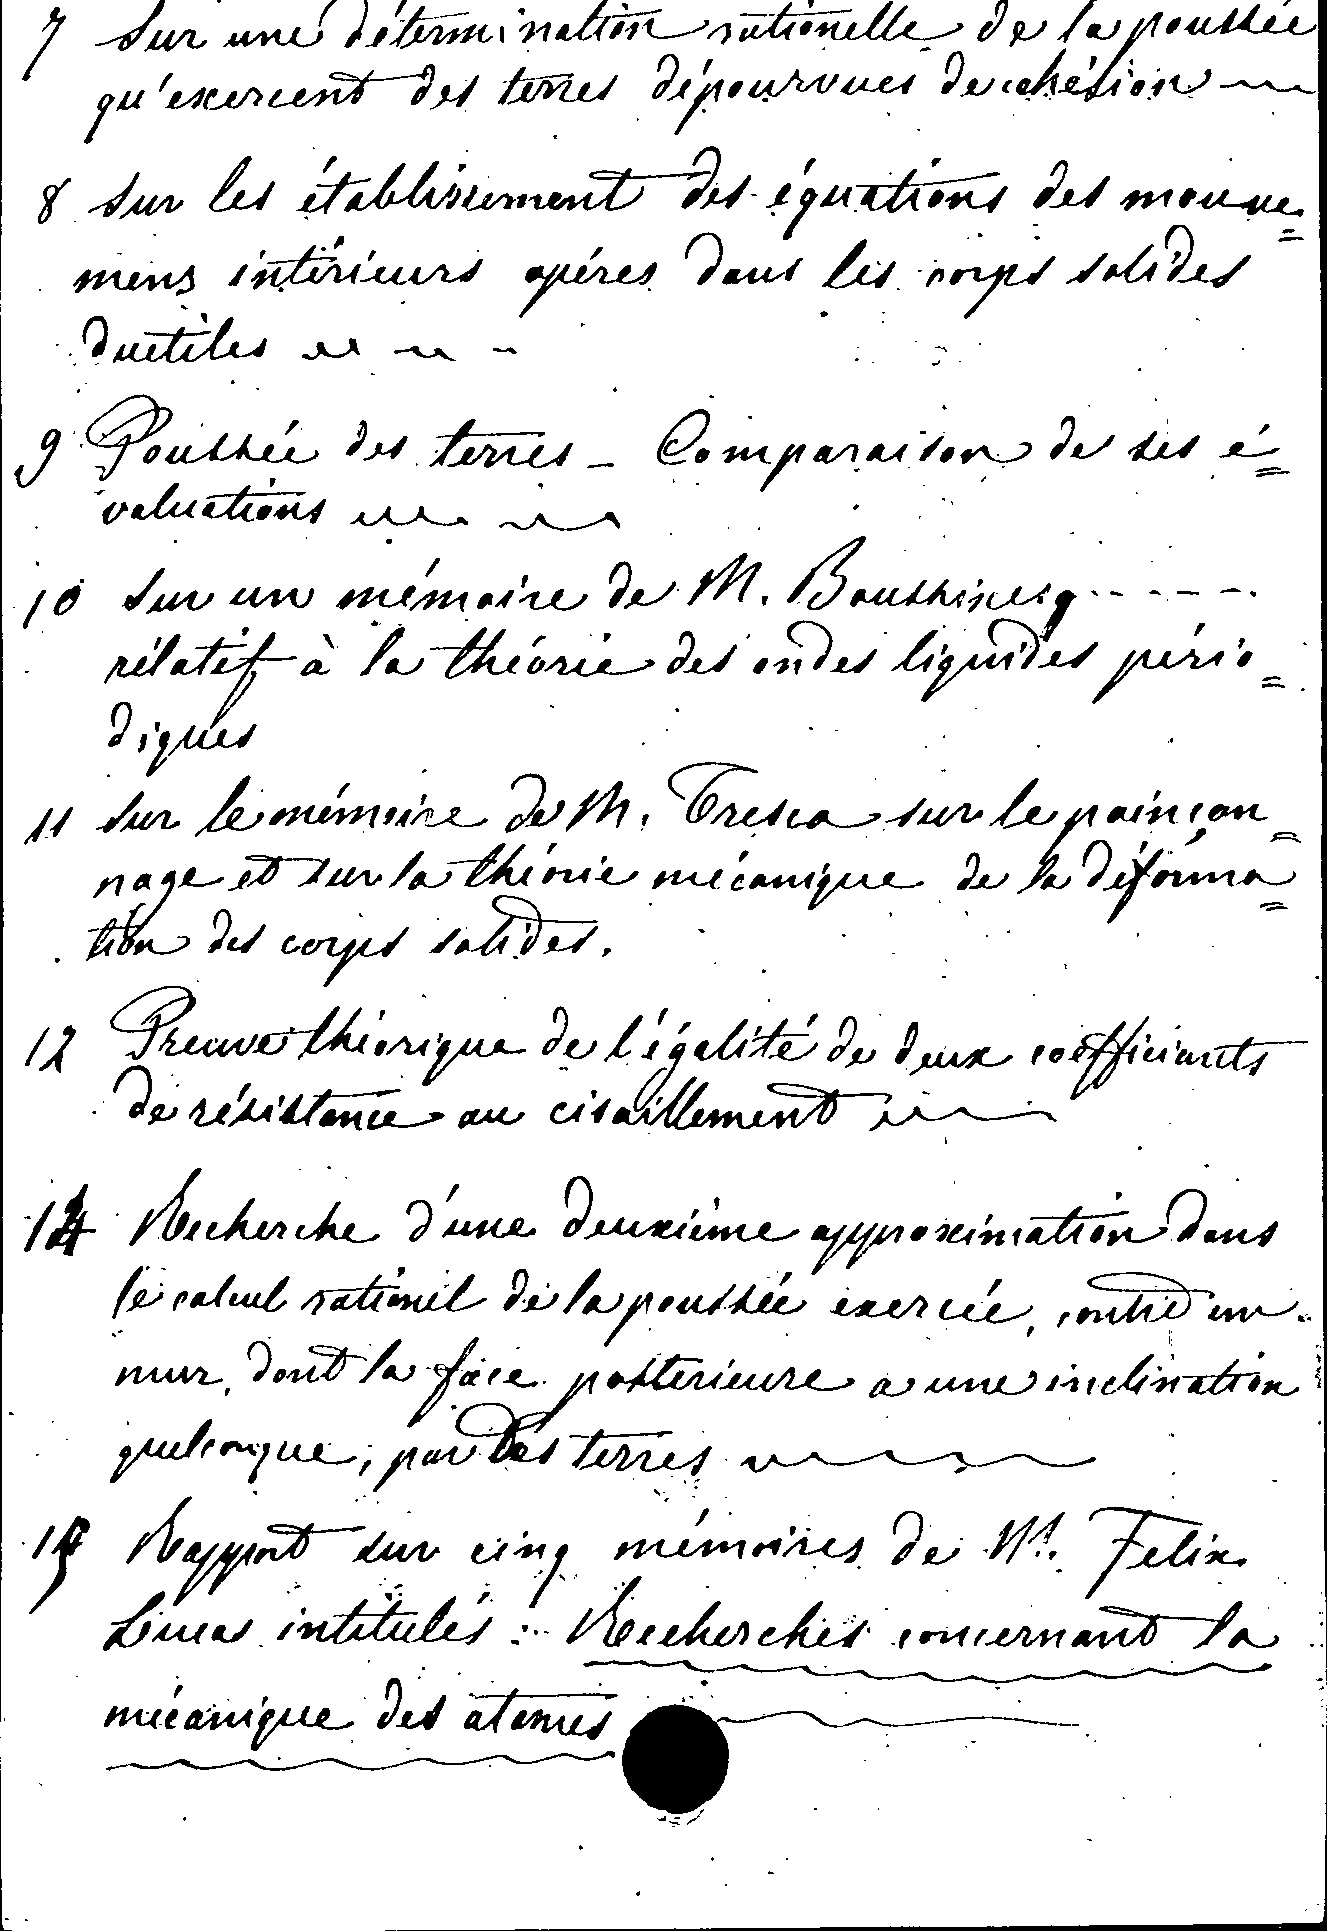 7 Sur une détermination rationelle de la poussée
qu'exercent des terres dépourvues de cohésion
8 Sur les établissement des équations des mouve=
mens intérieurs opéres dans les corps solides
ductiles
9 Poussée des terres - Comparaison de ses é=
valuations
10 Sur un mémoire de M. Boussinesq - - - - -
rélatif à la théorie des ondes liquides pério=
diques
11 Sur le mémoire de M. Tresca sur le poinçon=
nage et sur la théorie mécanique de la déforma=
tion des corps solides.
12 Preuve théorique de l'égalité de deux coefficients
de résistance au cisaillement
14 Recherche d'une deuxième approximation dans
le calcul rationel de la poussée exercée, contre un
mur, dont la face posterieure a une inclination
quelconque, par des terres
15 Rapport sur cinq mémoires de M. Felix
Lucas intitulés : Recherches concernant la
mécanique des atomes